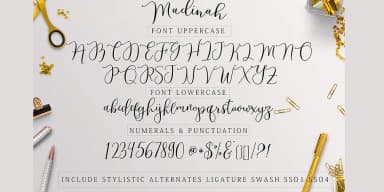 Madinah
FONT UPPERCASE
ABCDEFGHIJKLMN
OPQRSTUVWXYZ
FONT LOWERCASE
abcdefghijklmnopqrstuvwxyz
NUMERALS & PUNCTUATION
1234567890 @#$%&()!?!
INCLUDE STYLISTIC ALTERNATES LIGATURE SWASH SS01-SS04